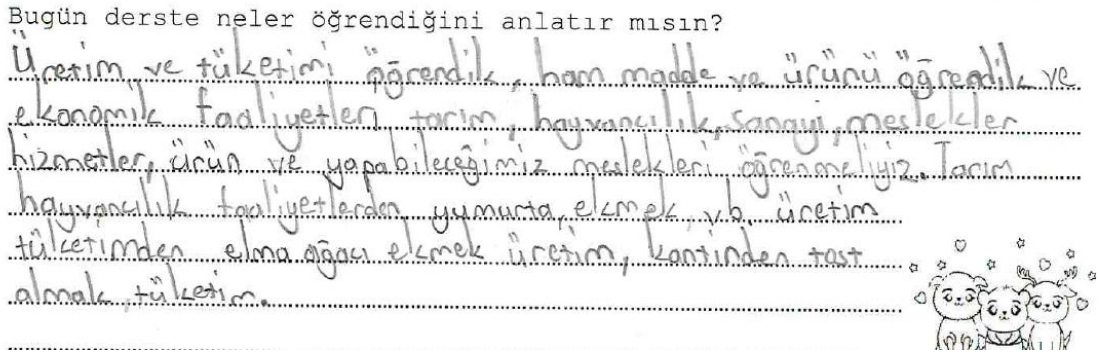 Bugün derste neler öğrendiğini anlatır mısın?
Üretim ve tüketimi öğrendik, ham madde ve ürünü öğrendik ve
ekonomik faaliyetleri tarım, hayvancılık, sanayi, meslekler
hizmetler, ürün ve yapabileceğimiz meslekleri öğrenmeliyiz. Tarım
hayvancılık faaliyetlerden yumurta, ekmek, vb. üretim
tüketimden elma ağacı ekmek üretim, kantinden tost
almak tüketim.